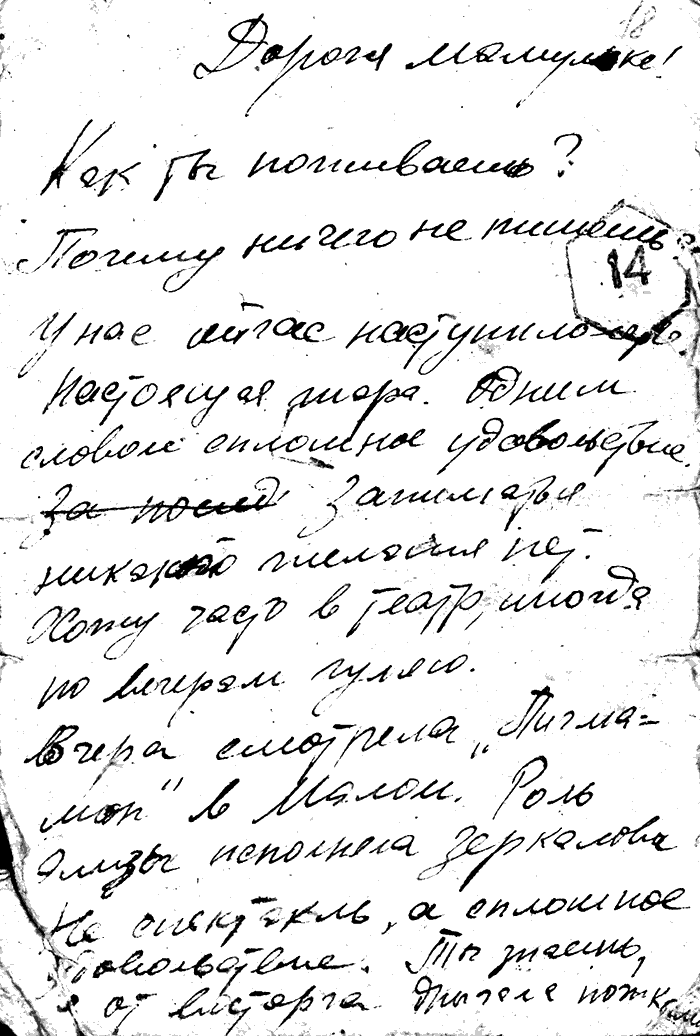 18
Дорогая мамулька!
Как ты поживаешь?
Почему ничего не пишешь?
14
У нас сейчас наступило
настоящая жара. Одним
словом сплошное удовольствие.
За послед Заниматься
никакого желания нет.
Хожу часто в театр, иногда
по вечерам гуляю.
Вчера смотрела „Пигма=
лион" в Малом. Роль
Элизы исполняла Зеркалова
Не спектакль, а сплошное
удовольствие. Ты знаешь,
я от восторга дрыгала ножками